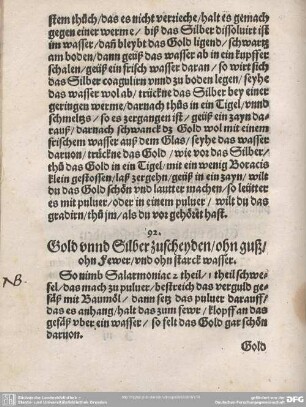 stem thůch / das es nicht verrieche / halt es gemach
gegen einer werme / biß das Silber dissoluirt ist
im wasser / daß bleybt das Gold ligend / schwartz
am boden / dann geůß das wasser ab in ein kupffer
schalen / geůß ein frisch wasser daran / so wirt sich
das Silber coagulirn vnnd zu boden legen / seyhe
das wasser wol ab / trückne das Silber bey einer
geringen werme / darnach thůs in ein Tigel / vnnd
schmeltzs / so es zergangen ist / geůß ein zayn da-
rauß / darnach schwanck dz Gold wol mit einem
frischem wasser auß dem Glas / seyhe das wasser
daruon / trückne das Gold / wie vor das Silber /
thů das Gold in ein Tigel / mit ein wenig Boracis
klein gestossen / laß zergehn / geůß in ein zayn / wilt
du das Gold schön vnd lautter machen / so leütter
es mit puluer / oder in einem puluer / wilt du das
gradirn / thů jm / als du vor gehöret hast.
92.
Gold vnnd Silber zuscheyden / ohn guß /
ohn Fewer / vnd ohn starck wasser.
NB.
So nimb Salarmoniac 2 theil / 1 theil schwe-
fel / das mach zu puluer / bestreich das verguld ge-
säß mit Baumöl / dann seg das puluer darauff /
das es anhang / halt das zum fewr / klopff an das
gesäß vber ein wasser / so felt das Gold gar schön
daruon.
Gold